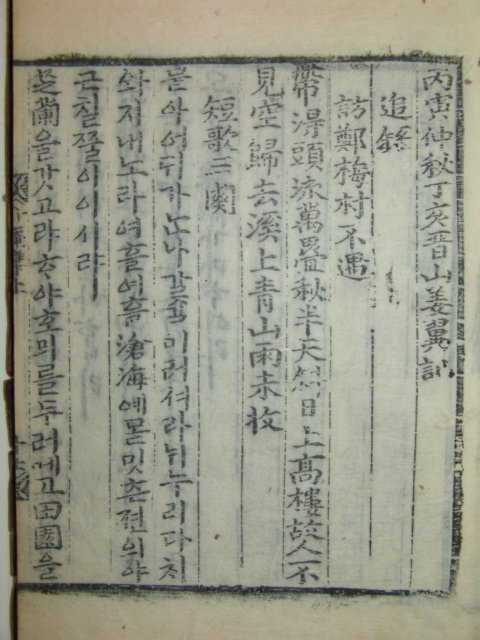 丙寅仲秋丁亥晋山姜翼記
追錄
訪鄭梅村不遇
帶得頭流萬疊秋半天斜日上高樓故人不
見空歸去溪上青山雨未收
短歌三闋
믈아어ᄃᆡ가ᄂᆞ나갈길미러셔라뉘누리다ᄎᆡ
와지내노라여흘여흘滄海예몯밋츤젼의야
근칠쭐이이시랴
芝蘭을갓고랴ᄒᆞ야호믜를두러메고田園을